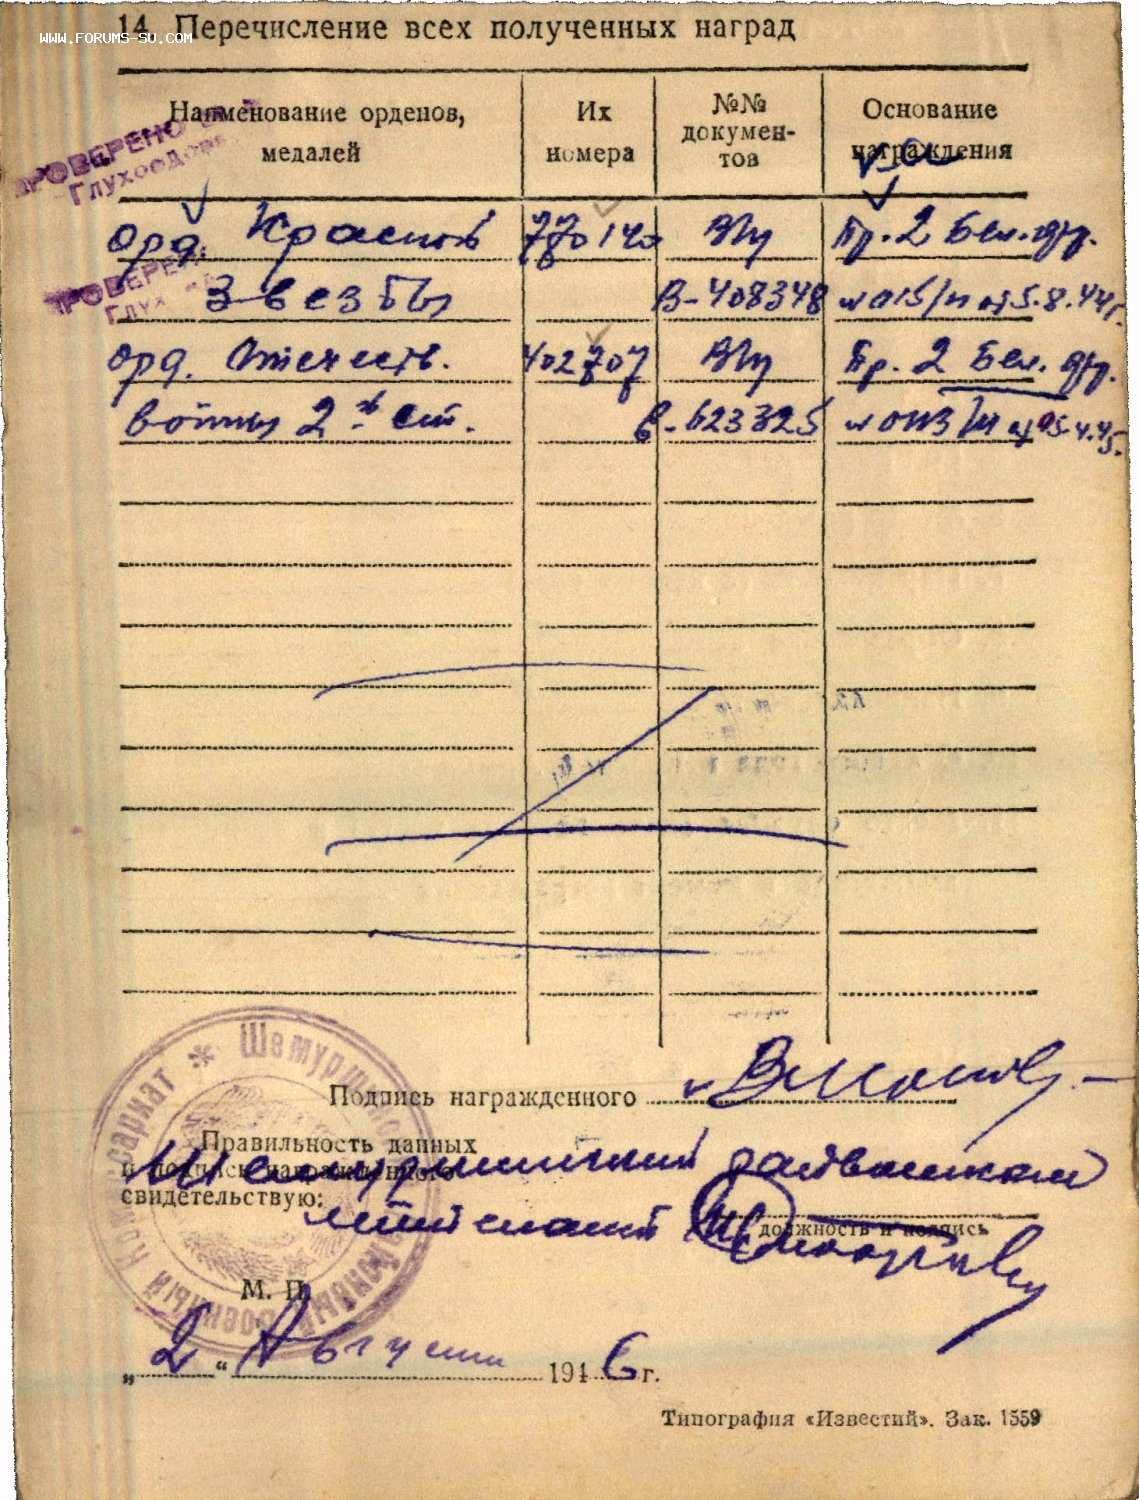 14. Перечисление всех полученных наград
WWW.FORUMS-SU.COM
Наименование орденов, медалей
Их номера
№№ докумен-
тов
Основание награждения
ПРОВЕРЕНО
Глухоедов
орд. Красной 770140 Вр. Пр. 2 Бел. фр.
Звезды В-408348 № 015/н от 5.8.44г.
ПРОВЕРЕНО
орд. Отечеств. 402707 Вр. Пр. 2 Бел. фр.
войны 2й ст. В-623325 № 0113/н от 05.4.45.
Подпись награжденного
Правильность данных
и подписи награжденного
свидетельствую:
Шемуршинский райвоенком
должность и подпись
М. П.
Военный Комиссариат
„ 2 “ Августа 1946 г.
Типография «Известий». Зак. 1559